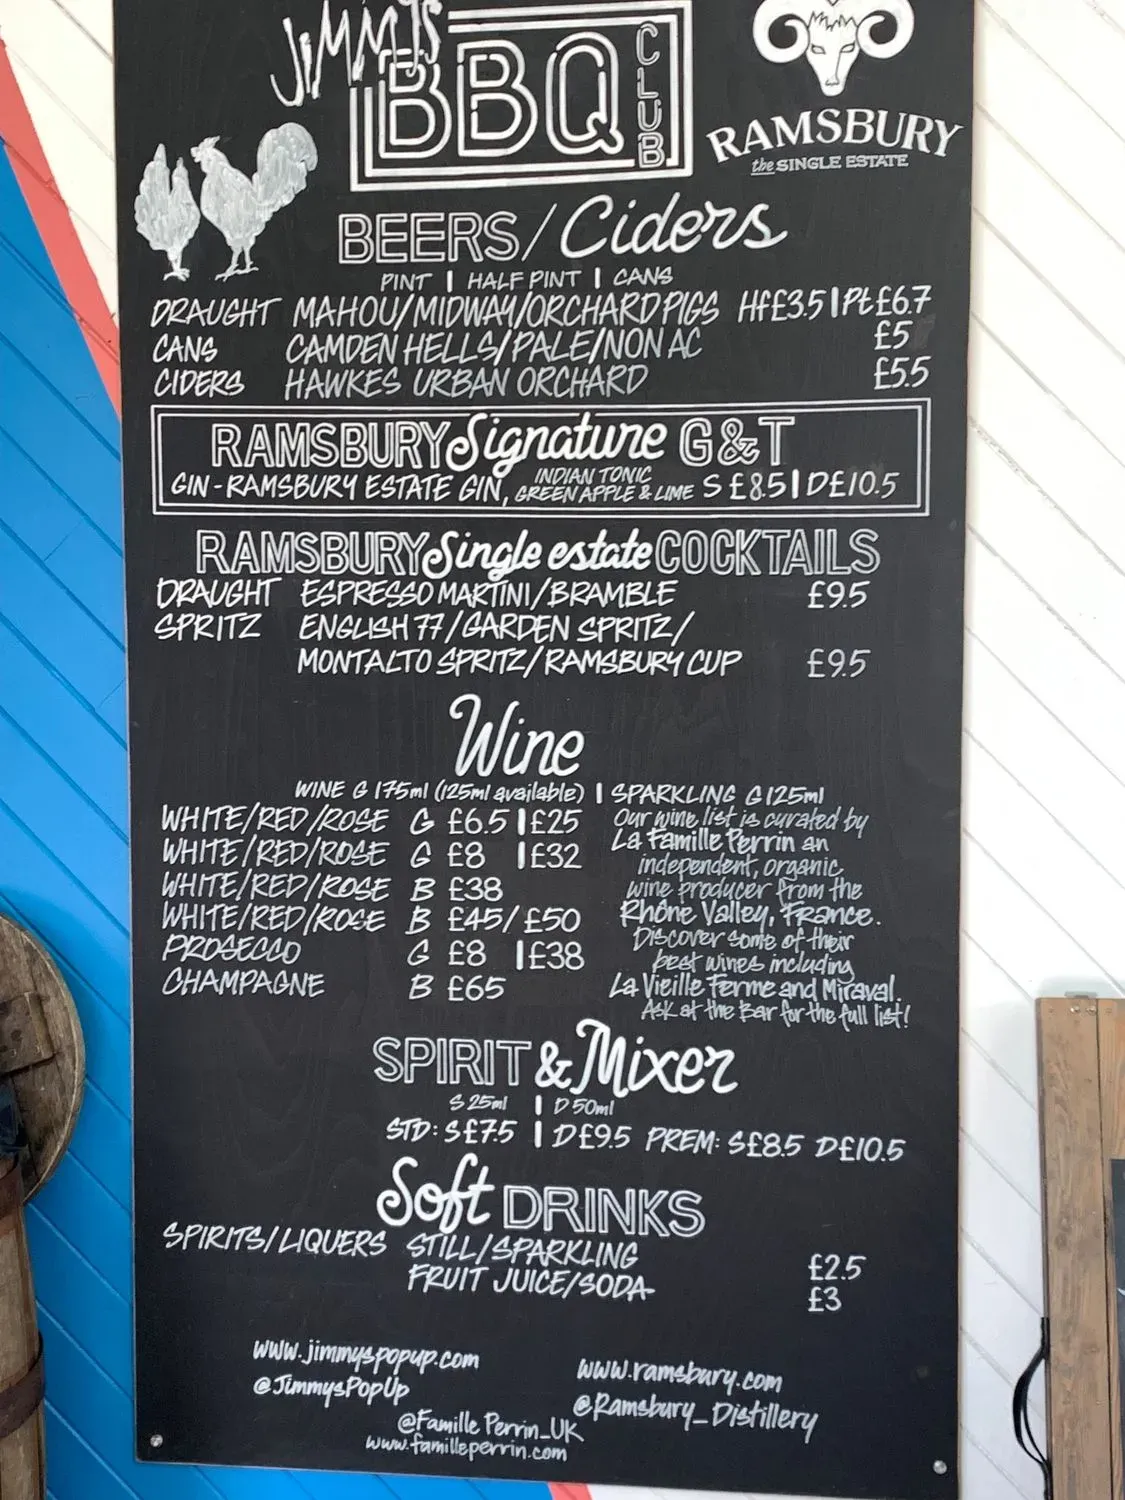 JiMMY'S
BBQ CLUB
RAMSBURY
the SINGLE ESTATE
BEERS/Ciders
PINT | HALF PINT | CANS
DRAUGHT MAHOU/MIDWAY/ORCHARD PIGS Hf£3.5|Pt£6.7
CANS CAMDEN HELLS/PALE/NON AC £5
CIDERS HAWKES URBAN ORCHARD £5.5
RAMSBURY Signature G&T
GIN-RAMSBURY ESTATE GIN, INDIAN TONIC GREEN APPLE & LIME S £8.5|D£10.5
RAMSBURY Single estate COCKTAILS
DRAUGHT ESPRESSO MARTINI/BRAMBLE £9.5
SPRITZ ENGLISH 77/GARDEN SPRITZ/
MONTALTO SPRITZ/RAMSBURY CUP £9.5
Wine
WINE G 175ml (125ml available) | SPARKLING G 125ml
WHITE/RED/ROSE G £6.5|£25
WHITE/RED/ROSE G £8 |£32
WHITE/RED/ROSE B £38
WHITE/RED/ROSE B £45/£50
PROSECCO G £8 |£38
CHAMPAGNE B £65
Our wine list is curated by
La Famille Perrin an
independent, organic
wine producer from the
Rhône Valley, France.
Discover some of their
best wines including
La Vieille Ferme and Miraval.
Ask at the Bar for the full list!
SPIRIT & Mixer
S 25ml | D 50ml
STD: S£7.5 | D£9.5 PREM: S£8.5 D£10.5
Soft DRINKS
SPIRITS/LIQUERS STILL/SPARKLING £2.5
FRUIT JUICE/SODA £3
www.jimmyspopup.com
@JimmysPopUp
www.ramsbury.com
@Ramsbury_Distillery
@Famille Perrin_UK
www.familleperrin.com